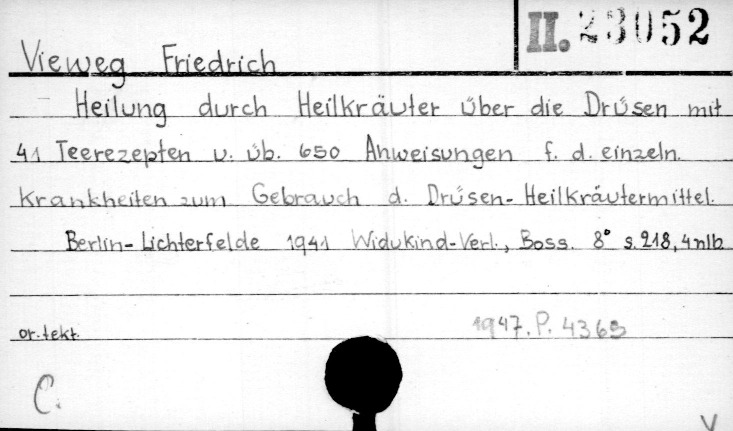 II. 23052
Vieweg Friedrich
Heilung durch Heilkräuter über die Drüsen mit
41 Teerezepten u. üb. 650 Anweisungen f. d. einzeln.
Krankheiten zum Gebrauch d. Drüsen-Heilkräutermittel.
Berlin-Lichterfelde 1941 Widukind-Verl., Boss. 8° s. 218, 4 nlb
or. tekt. 1947. P. 4365
C. V